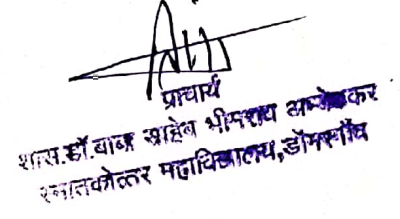 प्राचार्य
शास.डॉ.बाबा साहेब भीमराव अम्बेडकर
स्नातकोत्तर महाविद्यालय,डोंगरगाँव